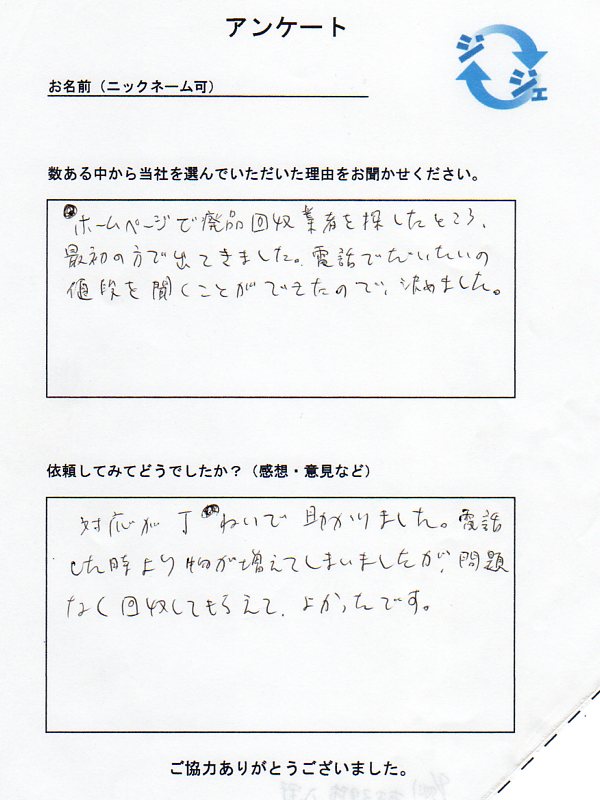 アンケート
ジ
ジェ
お名前（ニックネーム可）
数ある中から当社を選んでいただいた理由をお聞かせください。
ホームページで廃品回収業者を探したところ、
最初の方で出てきました。電話でだいたいの
値段を聞くことができたので、決めました。
依頼してみてどうでしたか？（感想・意見など）
対応が丁ねいで助かりました。電話
した時より物が増えてしまいましたが、問題
なく回収してもらえて、よかったです。
ご協力ありがとうございました。